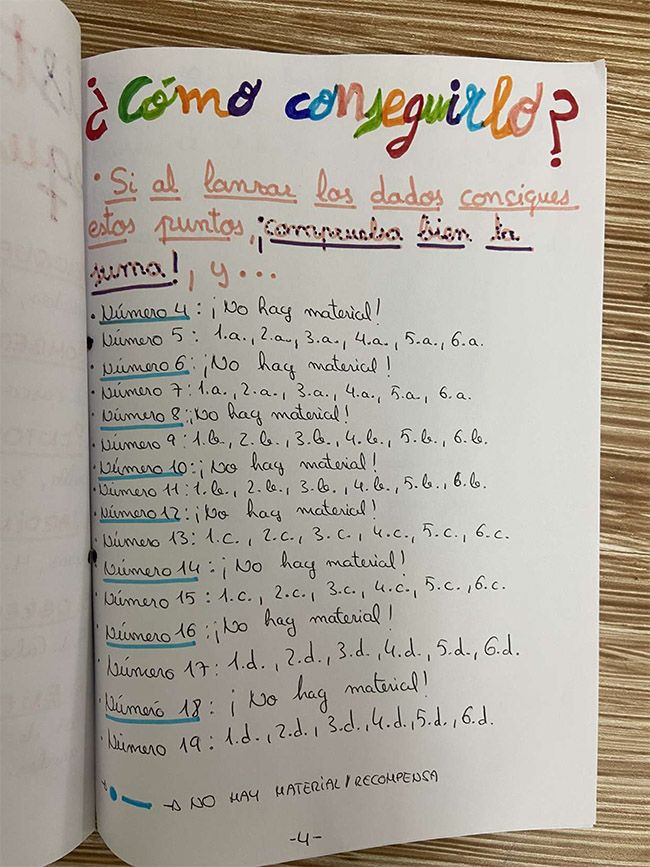 ¿Cómo conseguirlo?
· Si al lanzar los dados consigues
estos puntos, ¡comprueba bien la
suma!, y...
· Número 4: ¡No hay material!
· Número 5: 1.a., 2.a., 3.a., 4.a., 5.a., 6.a.
· Número 6: ¡No hay material!
· Número 7: 1.a., 2.a., 3.a., 4.a., 5.a., 6.a.
· Número 8: ¡No hay material!
· Número 9: 1.b., 2.b., 3.b., 4.b., 5.b., 6.b.
· Número 10: ¡No hay material!
· Número 11: 1.b., 2.b., 3.b., 4.b., 5.b., 6.b.
· Número 12: ¡No hay material!
· Número 13: 1.c., 2.c., 3.c., 4.c., 5.c., 6.c.
· Número 14: ¡No hay material!
· Número 15: 1.c., 2.c., 3.c., 4.c., 5.c., 6.c.
· Número 16: ¡No hay material!
· Número 17: 1.d., 2.d., 3.d., 4.d., 5.d., 6.d.
· Número 18: ¡No hay material!
· Número 19: 1.d., 2.d., 3.d., 4.d., 5.d., 6.d.
→ NO HAY MATERIAL/RECOMPENSA
-4-